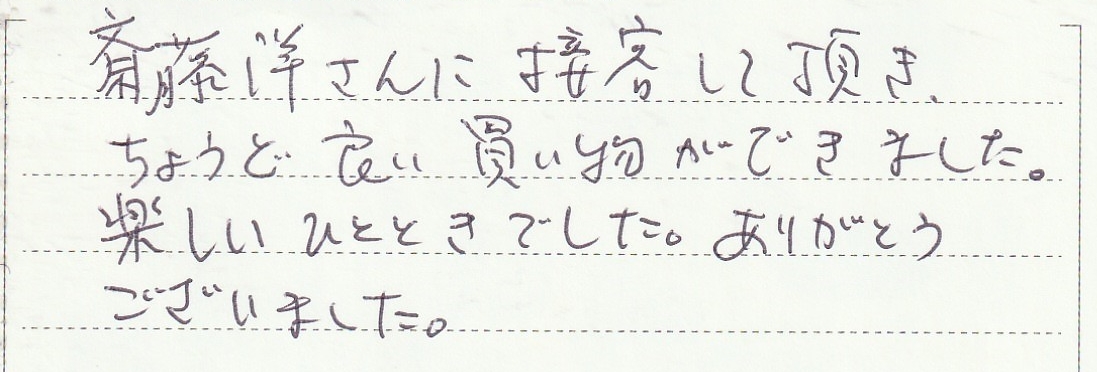 斎藤洋さんに接客して頂き、
ちょうど良い買い物ができました。
楽しいひとときでした。ありがとう
ございました。